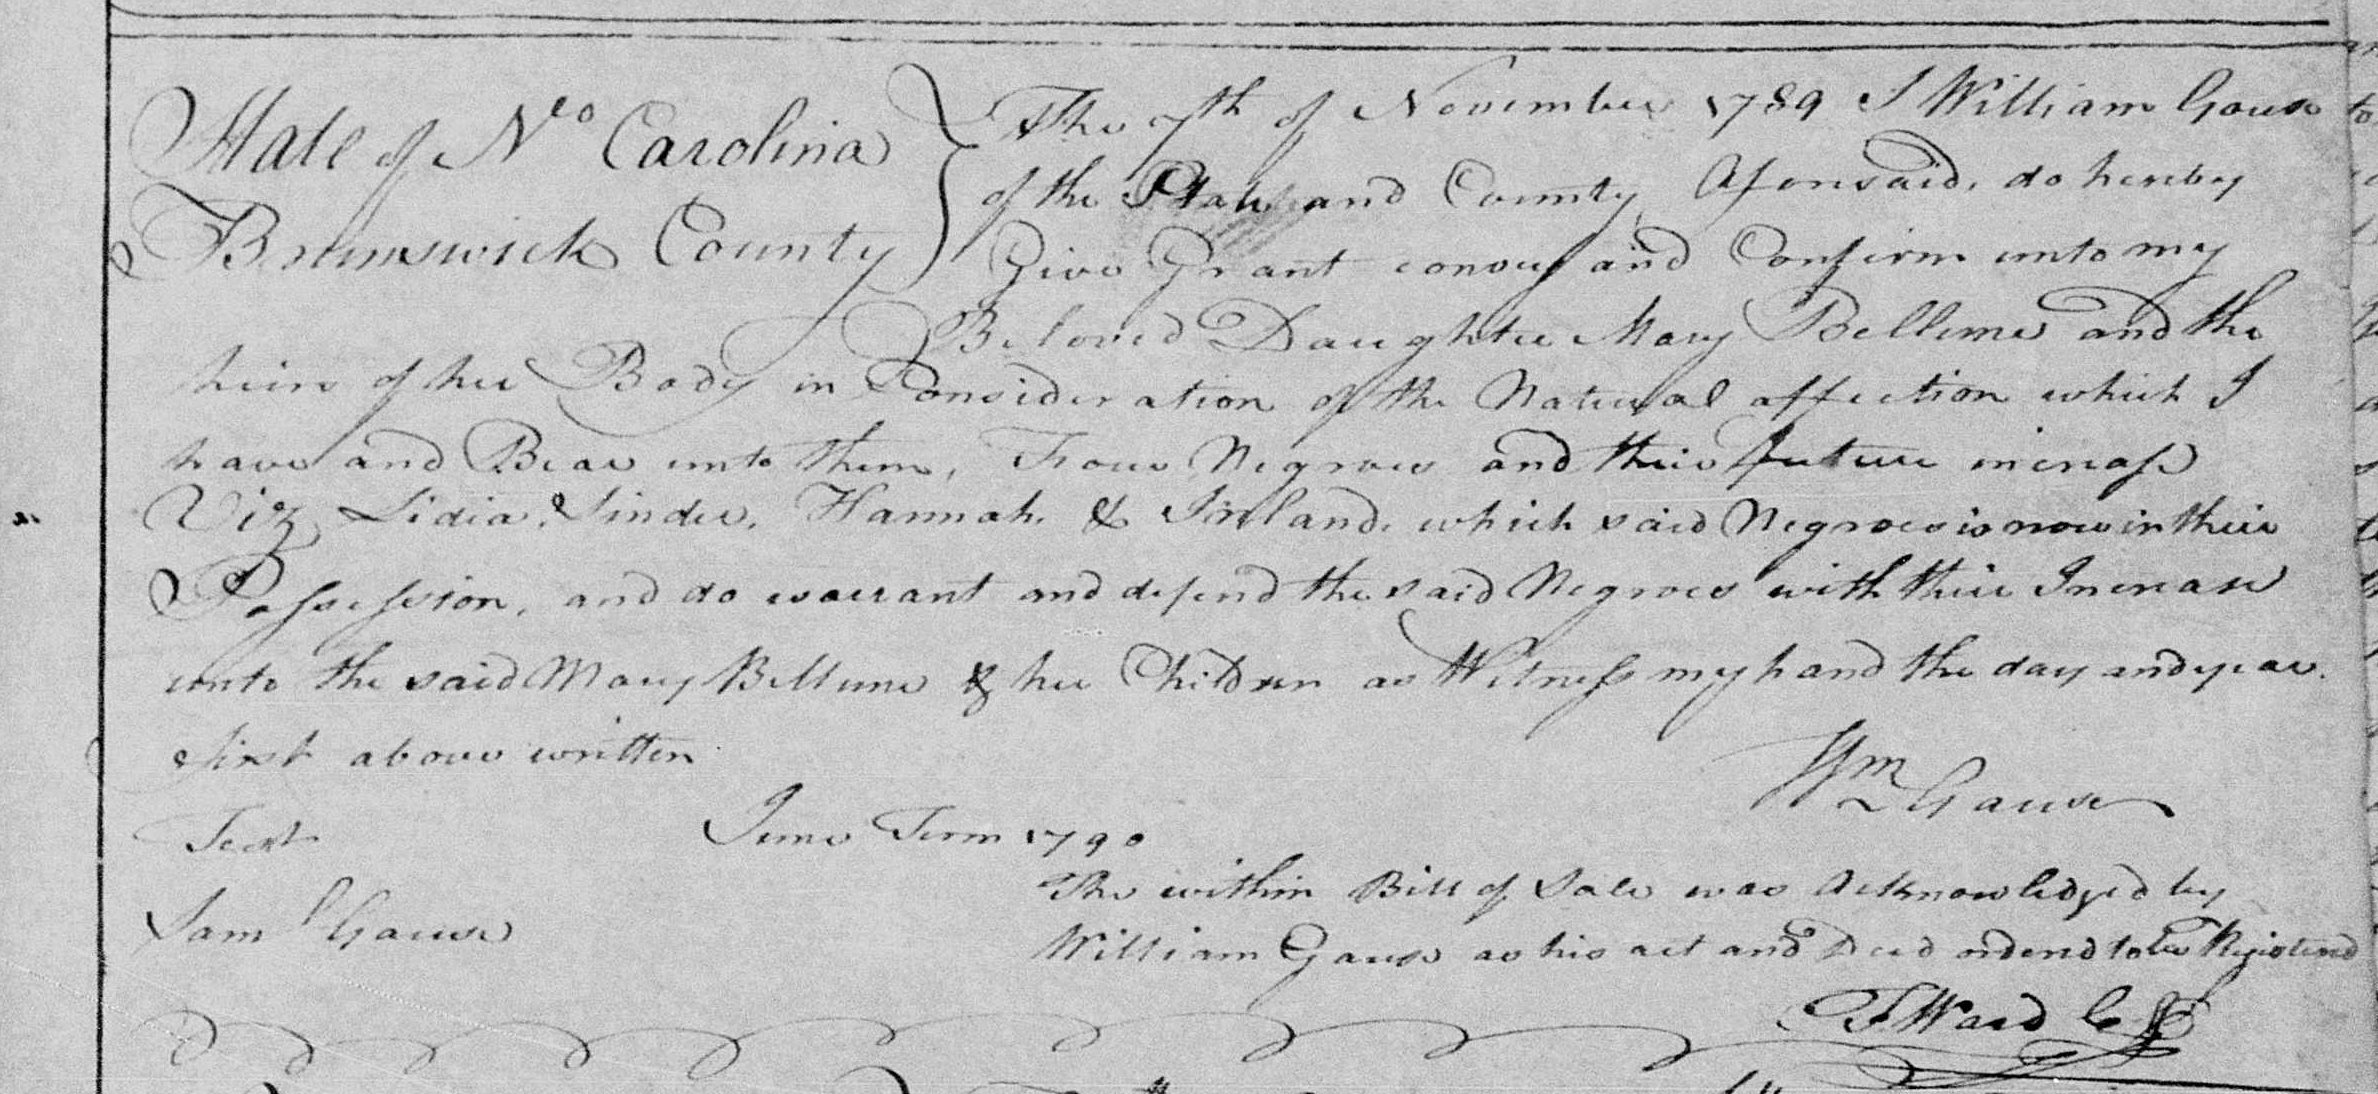 State of No Carolina
Brunswick County
The 7th of November 1789 I William Gause
of the State and County Aforesaid, do hereby
Give Grant convey and Confirm unto my
Beloved Daughter Mary Bellune and the
heirs of her Body in Consideration of the Natural affection which I
have and Bear unto them, Four Negroes and their future increase
Viz Lidia, Sinder, Hannah & which said Negroes is now in their
Possession, and do warrant and defend the said Negroes with their Increase
unto the said Mary Bellune & her Children as Witness my hand the day and year
first above written
Wm Gause
Test
June Term 1790
The within Bill of Sale was Acknowledged by
Saml Gause
William Gause as his act and Deed ordered to be Registered
Ward